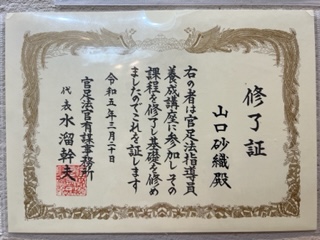 修了証
山口砂織殿
右の者は官足法指導員
養成講座に参加しその
課程を修了し基礎を修め
ましたのでこれを証します
令和五年三月二十日
官足法官有謀事務所
代表 水溜幹夫